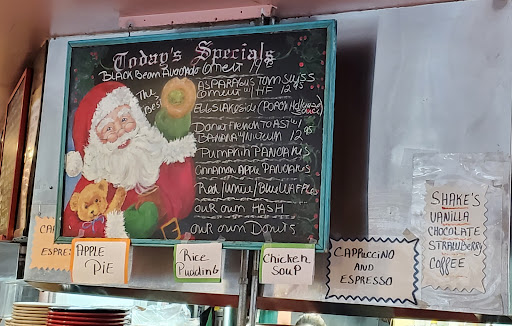 Today's Specials
Black Bean Avocado Omelet
The Best
Asparagus Tom Swiss
Omelet w/ HF 12.95
Eggs Lakeside (Poach Holland
Donut French Toast w/
Banana 12.95
Pumpkin Pancakes
Cinnamon Apple Pancakes
Red/White/Blue Waffles
our own Hash
our own Donuts
Apple
Pie
Rice
Pudding
Chicken
Soup
Cappuccino
and
Espresso
Shake's
Vanilla
Chocolate
Strawberry
Coffee